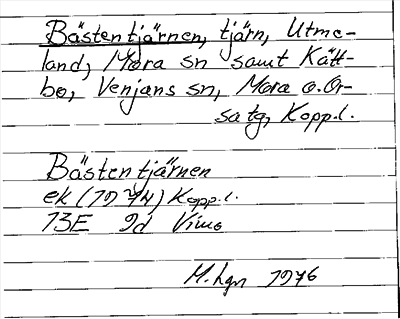 Bästentjärnen, tjärn, Utme-
land, Mora sn samt Kätt-
bo, Venjans sn, Mora o. Or-
sa tg, Kopp.l.
Bästentjärnen
ek (1974) Kopp.l.
13E 9d Vimo
M. Lgn 1976